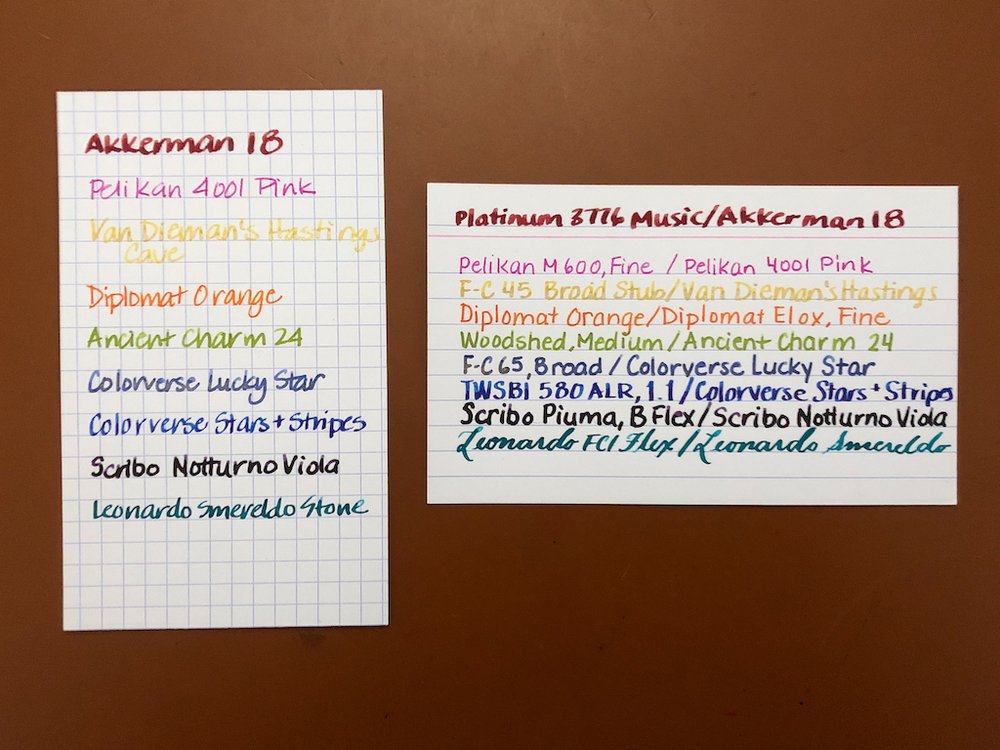 Akkerman 18
Pelikan 4001 Pink
Van Dieman's Hastings
Cave
Diplomat Orange
Ancient Charm 24
Colorverse Lucky Star
Colorverse Stars + Stripes
Scribo Notturno Viola
Leonardo Smereldo Stone
Platinum 3776 Music/Akkerman 18
Pelikan M600, Fine / Pelikan 4001 Pink
F-C 45 Broad Stub/Van Dieman's Hastings
Diplomat Orange/Diplomat Elox, Fine
Woodshed, Medium/Ancient Charm 24
F-C 65, Broad / Colorverse Lucky Star
TWSBI 580 ALR, 1.1 / Colorverse Stars + Stripes
Scribo Piuma, B Flex/Scribo Notturno Viola
Leonardo Flex/Leonardo Smereldo